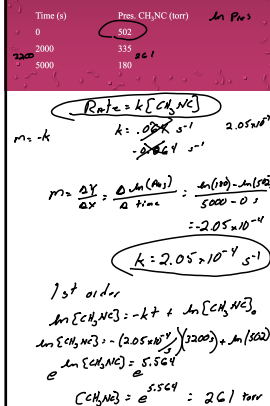 Time (s) Pres. CH₃NC (torr) ln Pres
0 502
2000 335
3200 261
5000 180
Rate = k[CH₃NC]
m = -k k = .064 s⁻¹ 2.05x10⁻⁴
-0.064 s⁻¹
m = ΔY/ΔX = Δ ln(Pres)/Δ time = ln(180)-ln(502)/5000-0 s
= -2.05x10⁻⁴
k = 2.05x10⁻⁴ s⁻¹
1st order
ln[CH₃NC] = -kt + ln[CH₃NC]₀
ln[CH₃NC] = -(2.05x10⁻⁴/s)(3200s) + ln(502)
e^ln[CH₃NC] = e^5.564
[CH₃NC] = e^5.564 = 261 torr